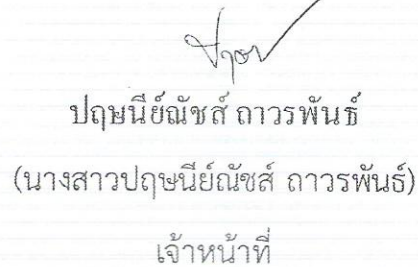 ปฤษนีย์ณัชส์ ถาวรพันธ์
(นางสาวปฤษนีย์ณัชส์ ถาวรพันธ์)
เจ้าหน้าที่